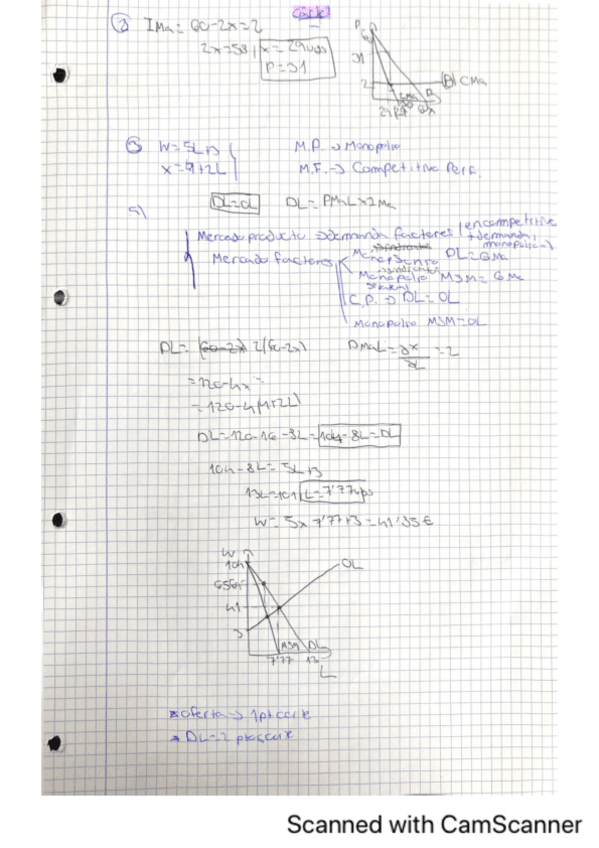 ② IMa = 60-2x = 2
2x=58 x = 29 uds
P = 31
P
60
31
2
CMa
29
③ W = 5L+3
x = 4+2L
M.P. → Monopolio
M.F. → Competitive Perf.
a)
DL=OL DL = PMaL x IMa
Mercado producto → demanda factores (en competitive
+demanda,
monopolio -)
Mercado factores
Monopsonio DL=GMa
Monopolio MSM = GMa
C.P. → DL = OL
Monopolio MSM = OL
DL = (60-2x) 2(60-2x) PMaL = ∂x/∂L = 2
= 120-4x =
= 120-4(4+2L)
DL=120-16-8L = 104-8L = DL
104-8L = 5L+3
13L=101 L=7'77 ups
W = 5x 7'77+3 = 41'85€
W
104
OL
41
3
MSM DL
7'77 13
L
* oferta → 1 pto corte
* DL → 2 ptos corte
Scanned with CamScanner